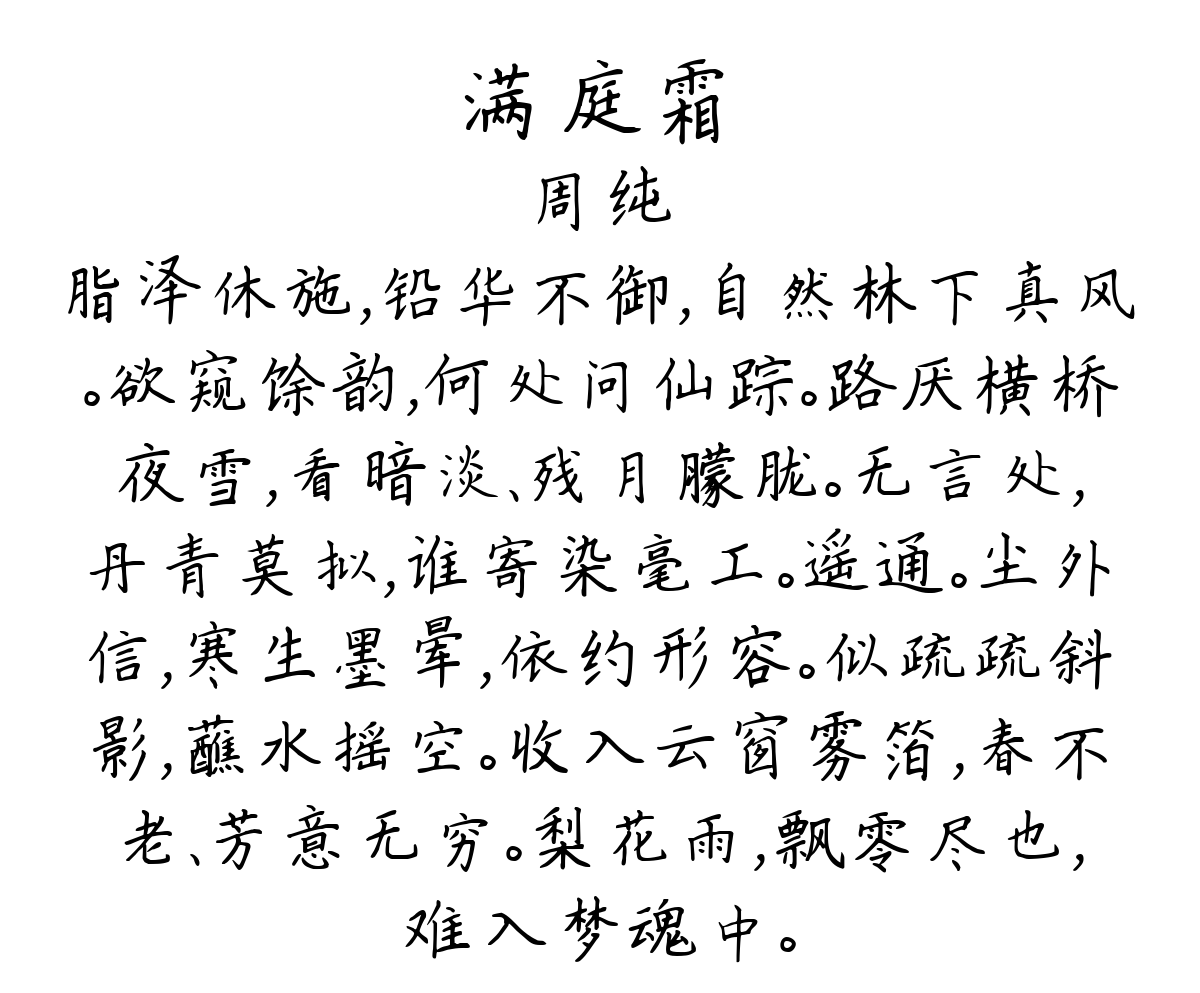 满庭霜
周纯
脂泽休施,铅华不御,自然林下真风
。欲窥馀韵,何处问仙踪。路厌横桥
夜雪,看暗淡、残月朦胧。无言处,
丹青莫拟,谁寄染毫工。遥通。尘外
信,寒生墨晕,依约形容。似疏疏斜
影,蘸水摇空。收入云窗雾箔,春不
老、芳意无穷。梨花雨,飘零尽也,
难入梦魂中。